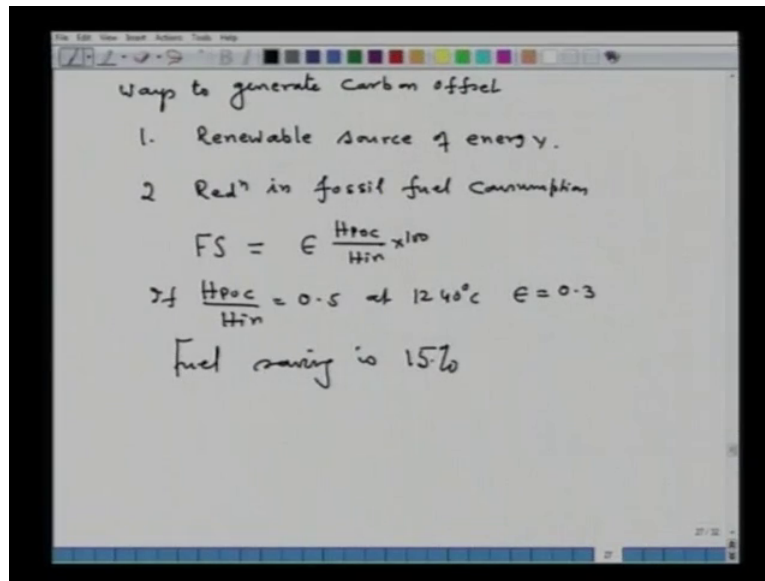 File Edit View Insert Actions Tools Help
ways to generate Carbon offset
1. Renewable source of energy.
2 Redⁿ in fossil fuel Consumption
FS = ϵ Hpoc/Hin x100
If Hpoc/Hin = 0.5 at 1240°c ϵ = 0.3
Fuel saving is 15%
27/32
27